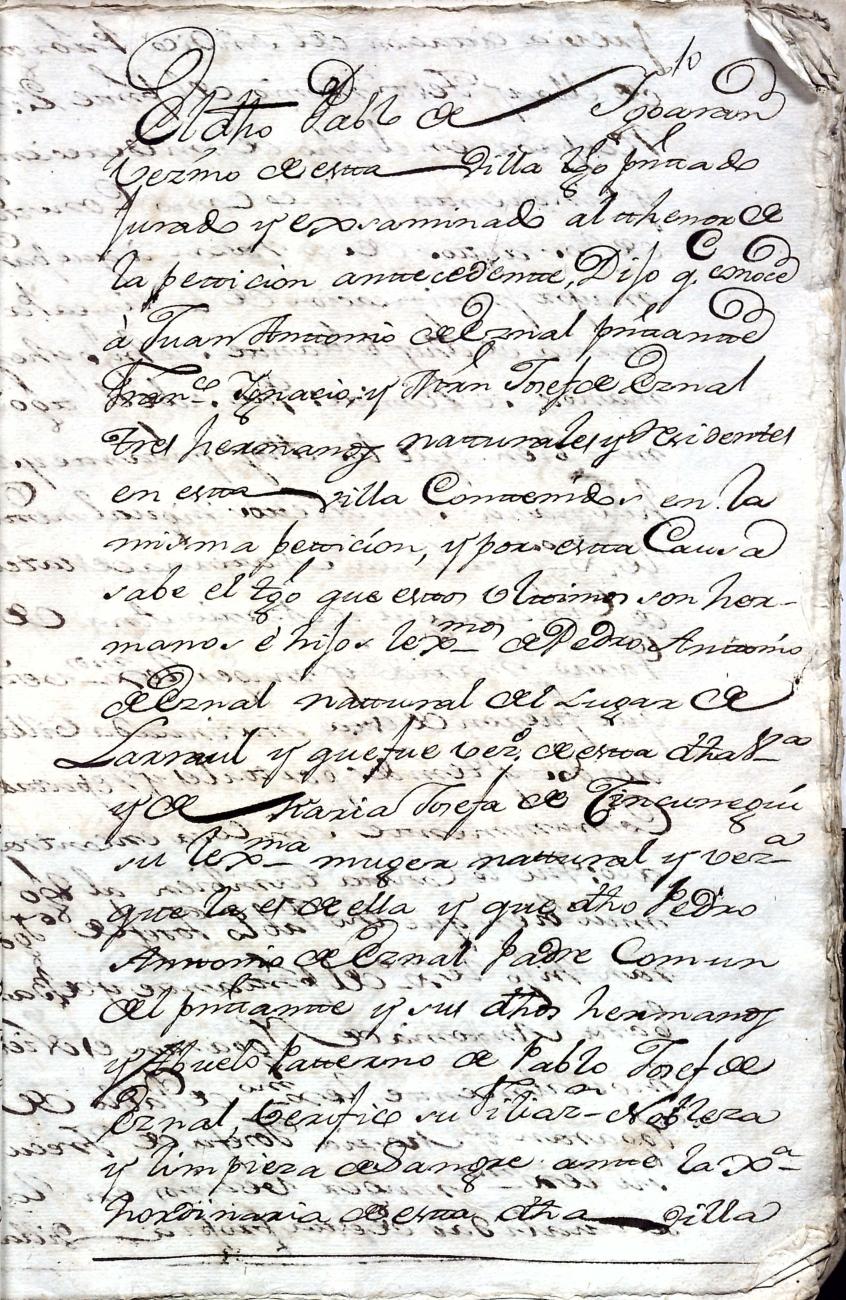 El dho Pablo de Ygaran
Vezino de esta Villa tgo pñtado
jurado y exsaminado al thenor de
la petticion anttecedentte, Dijo q. conoce
à Juan Anttonio de Eznal pñtantte
Fran.co Ygnacio, y Mrn Josef de Eznal
tres hermanos natturales y Residentes
en estta villa Conttenidos en la
misma petticion, y por estta Causa
sabe el tgo que estos ulttimos son her-
manos é hijos lexmos de Pedro Antonio
de Eznal nattural del Lugar de
Larraul y que fue vez.o de estta dha V.a
y de Maria Josefa de Tincunegui
su lexma muger nattural y veza
que la es de ella y que dho Pedro
Anttonio de Eznal Padre Comun
del pñtantte y sus dhos hermanos
y Abuelo Patterno de Pablo Josef de
Eznal, verifico su Nobleza
y limpieza de Sangre antte la xa
hordinaria de estta dha Villa